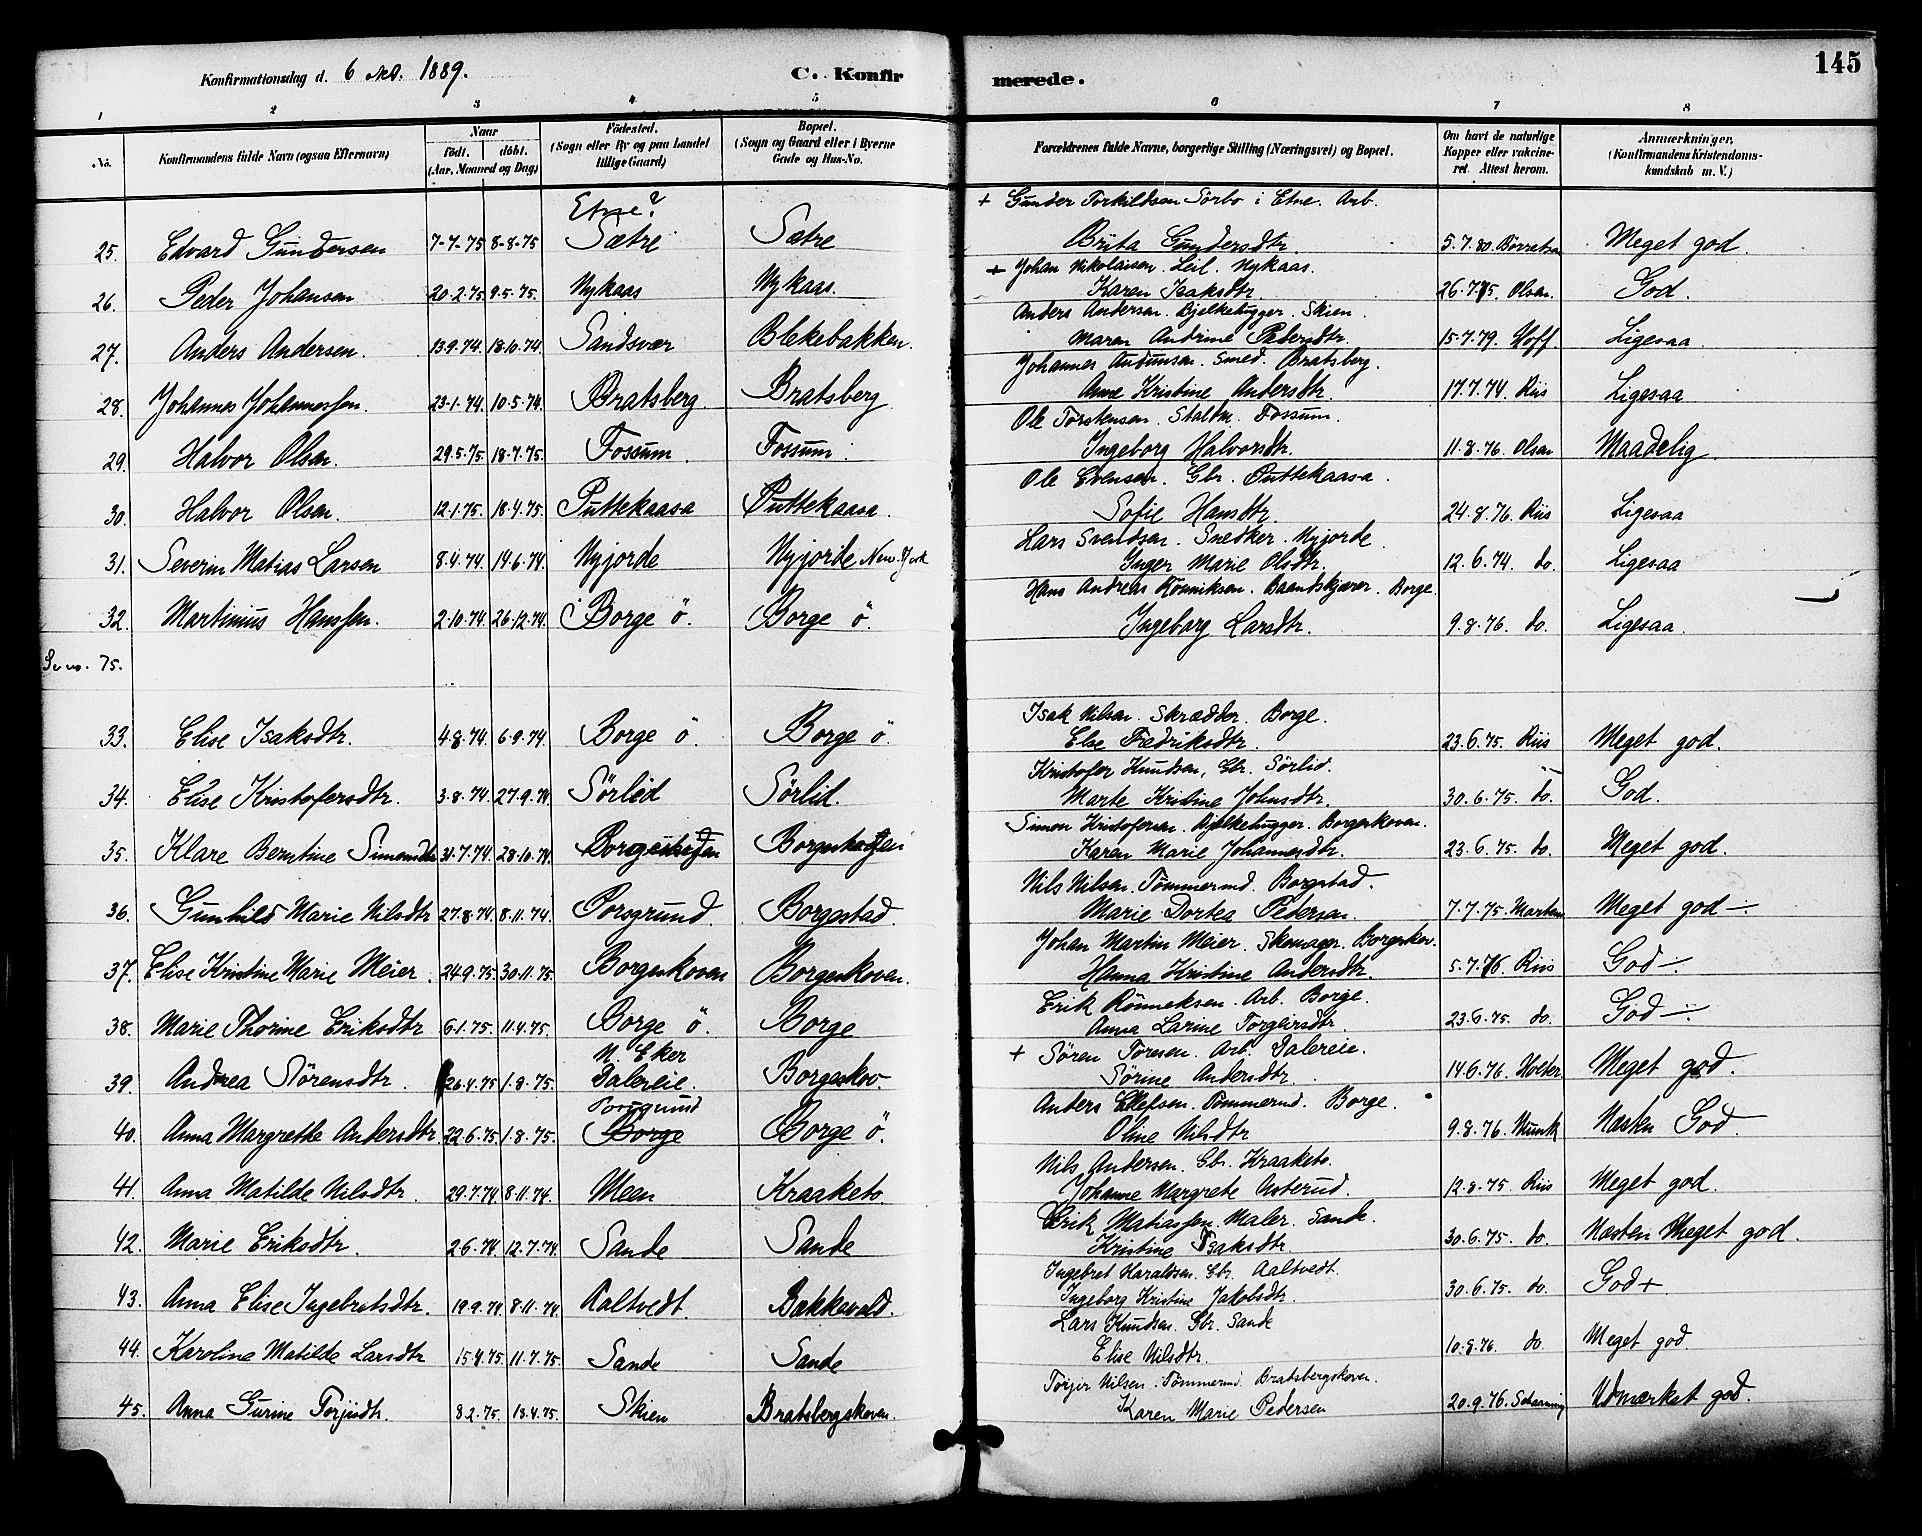 Konfirmationsdag d. 6 Okt. 1889. C. Konfirmerede. 145
1 2 3 4 5 6 7 8
No. Konfirmandens fulde Navn (ogsaa Efternavn) Naar födt. döbt. (Aar, Maaned og Dag) Födested. (Sogn eller By og paa Landet tillige Gaard) Bopæl. (Sogn og Gaard eller i Byerne Gade og Hus-No. Forældrenes fulde Navne, borgerlige Stilling (Næringsvei) og Bopæl. Om havt de naturlige Kopper eller vakcineret. Attest herom. Anmærkninger. (Konfirmandens Kristendomskundskab m. V.)
Etne? + Gunder Torkildsen Sörbo i Etne. Arb.
25. Edvard Gundersen 7-7-75 8-8-75 Sætre Sætre Brita Gundersdtr. 5.7.80 Meget god
+ Johan Nikolaisen. Leil. Nykaas.
26. Peder Johansen 20.2.75 9.5.75. Nykaas Nykaas. Karen Isaksdtr. 26.7.75. Olsen. God.
Anders Andersen. Bjelkehugger. Skien.
27. Anders Andersen. 13.9.74. 18.10.74 Sandsvær Blekebakken. Maren Andrine Pedersdtr. 15.7.79. Hoff. Ligesaa.
Johannes Andunsen. Smed. Bratsberg.
28. Johannes Johannessen. 23.1.74. 10.5.74 Bratsberg. Bratsberg. Anne Kristine Andersdtr. 17.7.74. Riis Ligesaa
Ole Torstensen. Staldm. Fossum.
29. Halvor Olsen. 29.5.75. 18.7.75. Fossum. Fossum. Ingeborg Halvorsdtr. 11.8.76. Olsen Maadelig.
Ole Evensen. Gbr. Puttekaasa.
30. Halvor Olsen. 12.1.75. 18.4.75. Puttekaasa Puttekaasa. Sofie Hansdtr. 24.8.76. Riis Ligesaa
Lars Svendsen. Snedker. Nyjorde.
31. Severin Matias Larsen 8.4.74 14.6.74. Nyjorde Nyjorde New York Inger Marie Olsdtr. 12.6.74. do. Ligesaa
Hans Andreas Rönniksen. Baandskjærer. Borge.
32. Martinius Hanssen. 2.10.74. 26.12.74. Borge ö. Borge ö. Ingeborg Larsdtr. 9.8.76. do. Ligesaa.
75.
Isak Nilsen. Skrædder. Borge.
33. Elise Isaksdtr. 4.8.74. 6.9.74. Borge ö. Borge ö. Else Fredriksdtr. 23.6.75. Riis Meget god.
Kristofer Knudsen, Gbr. Sörlid.
34. Elise Kristofersdtr. 3.8.74. 27.9.74 Sörlid Sörlid. Marte Kristine Johnsdtr. 30.6.75. do. God.
Simon Kristofersen. Bjelkehugger. Borgeskoven.
35. Klare Berntine Simonsdtr 31.7.74. 28.10.74. Karen Marie Johannesdtr. 23.6.75. do. Meget god.
Nils Nilsen. Tömmermd. Borgestad.
36. Gunhild Marie Nilsdtr 27.8.74. 8.11.74. Porsgrund. Borgestad. Marie Dortea Pedersen. 7.7.75. Meget god -.
Johan Martin Meier. Skomager. Borgeskov.
37. Elise Kristine Marie Meier. 24.9.75. 30.11.75. Borgeskoven Borgeskoven. Hanna Kristine Andersdtr. 5.7.76. Riis God -.
Erik Rönneksen. Arb. Borge.
38. Marie Thorine Eriksdtr 6.1.75. 11.4.75. Borge ö. Borge Anna Larine Torgersdtr. 23.6.75. do. God -.
N. Eker + Sören Toresen. Arb. Dalereie.
39. Andrea Sörensdtr. 26.4.75 1.8.75. Dalereie. Borgeskov Sörine Andersdtr. 14.6.76. Meget god.
Porsgrund Anders Ellefsen. Tömmermd. Borge.
40. Anna Margrethe Andersdtr. 22.6.75. 1.8.75. Borge Borge ö. Oline Nilsdtr 9.8.76. Munk Næsten God.
Nils Andersen. Gbr. Kraaketo.
41. Anna Matilde Nilsdtr. 29.7.74 8.11.74. Meen Kraaketo Johanne Margrete Aasterud. 12.8.75. Riis Meget god.
Erik Matiassen. Maler. Sande.
42. Marie Eriksdtr. 2.6.74. 12.7.74. Sande Sande Kristine Isaksdtr. 30.6.75. do. Næsten Meget god.
Ingebret Haraldsen. Gbr. Aaltvedt.
43. Anna Elise Ingebretsdtr. 19.9.74 8.11.74. Aaltvedt Bakkevold. Ingeborg Kristine Jakobsdtr. 30.6.75. do. God +
Lars Knudsen. Gbr. Sande
44. Karoline Matilde Larsdtr 15.4.75. 11.7.75. Sande Sande Elise Nilsdtr. 10.8.76. do. Meget god.
Torjer Nilsen. Tömmermd. Bratsbergskoven.
45. Anna Gurine Torjusdtr. 8.2.75. 13.4.75. Skien Bratsbergskoven. Karen Marie Pedersen 20.9.76. Udmærket god.